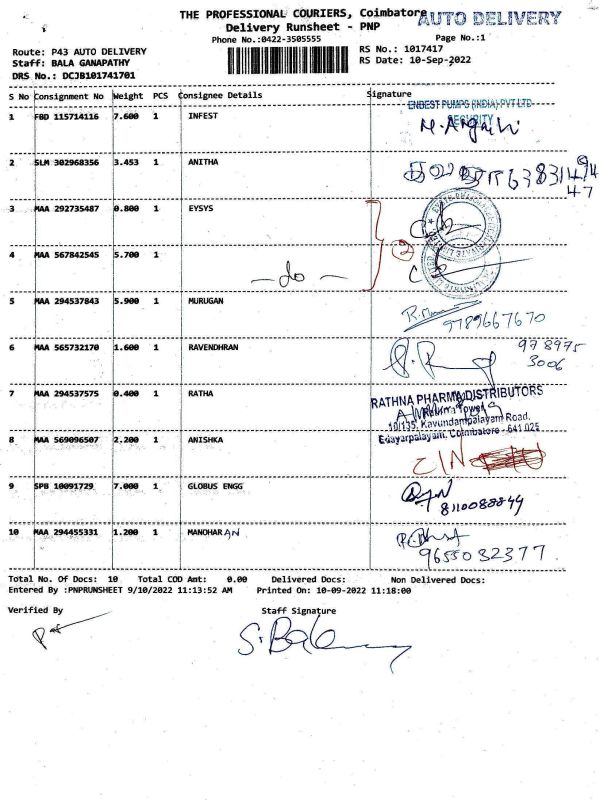 THE PROFESSIONAL COURIERS, Coimbatore
AUTO DELIVERY
Delivery Runsheet - PNP
Phone No.:0422-3505555
Page No.:1
Route: P43 AUTO DELIVERY
RS No.: 1017417
Staff: BALA GANAPATHY
RS Date: 10-Sep-2022
DRS No.: DCJB101741701
S No Consignment No Weight PCS Consignee Details Signature
ENBEST PUMPS (INDIA) PVT LTD
SECURITY
1 FBD 115714116 7.600 1 INFEST
2 SLM 302968356 3.453 1 ANITHA
3 MAA 292735487 0.800 1 EYSYS
2
4 MAA 567842545 5.700 1
- do -
5 MAA 294537843 5.900 1 MURUGAN
9789667670
6 MAA 565732170 1.600 1 RAVENDHRAN
978975
3006
7 MAA 294537575 0.400 1 RATHA
RATHNA PHARMA DISTRIBUTORS
10/135, Kavundampalayam Road,
Edayarpalayam, Coimbatore - 641 025
8 MAA 569096507 2.200 1 ANISHKA
9 SPB 10091729 7.000 1 GLOBUS ENGG
8110088849
10 MAA 294455331 1.200 1 MANOHARAN
9655032377
Total No. Of Docs: 10 Total COD Amt: 0.00 Delivered Docs: Non Delivered Docs:
Entered By :PNPRUNSHEET 9/10/2022 11:13:52 AM Printed On: 10-09-2022 11:18:00
Verified By Staff Signature
S. Bala